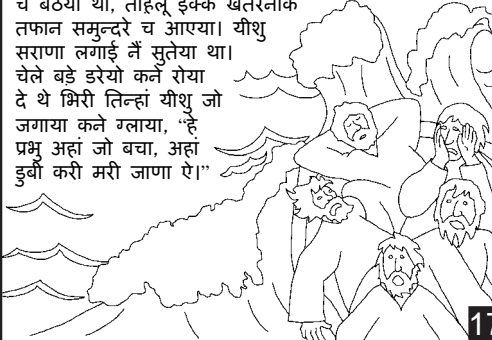 च बैठेया था, ताहलू इक्क खतरनाक
तफान समुन्दरे च आएया। यीशु
सराणा लगाई नैं सुतेया था।
चेले बड़े डरेयो कने रोया
दे थे भिरी तिन्हां यीशु जो
जगाया कने ग्लाया, “हे
प्रभु अहां जो बचा, अहां
डुबी करी मरी जाणा ऐ।”
17